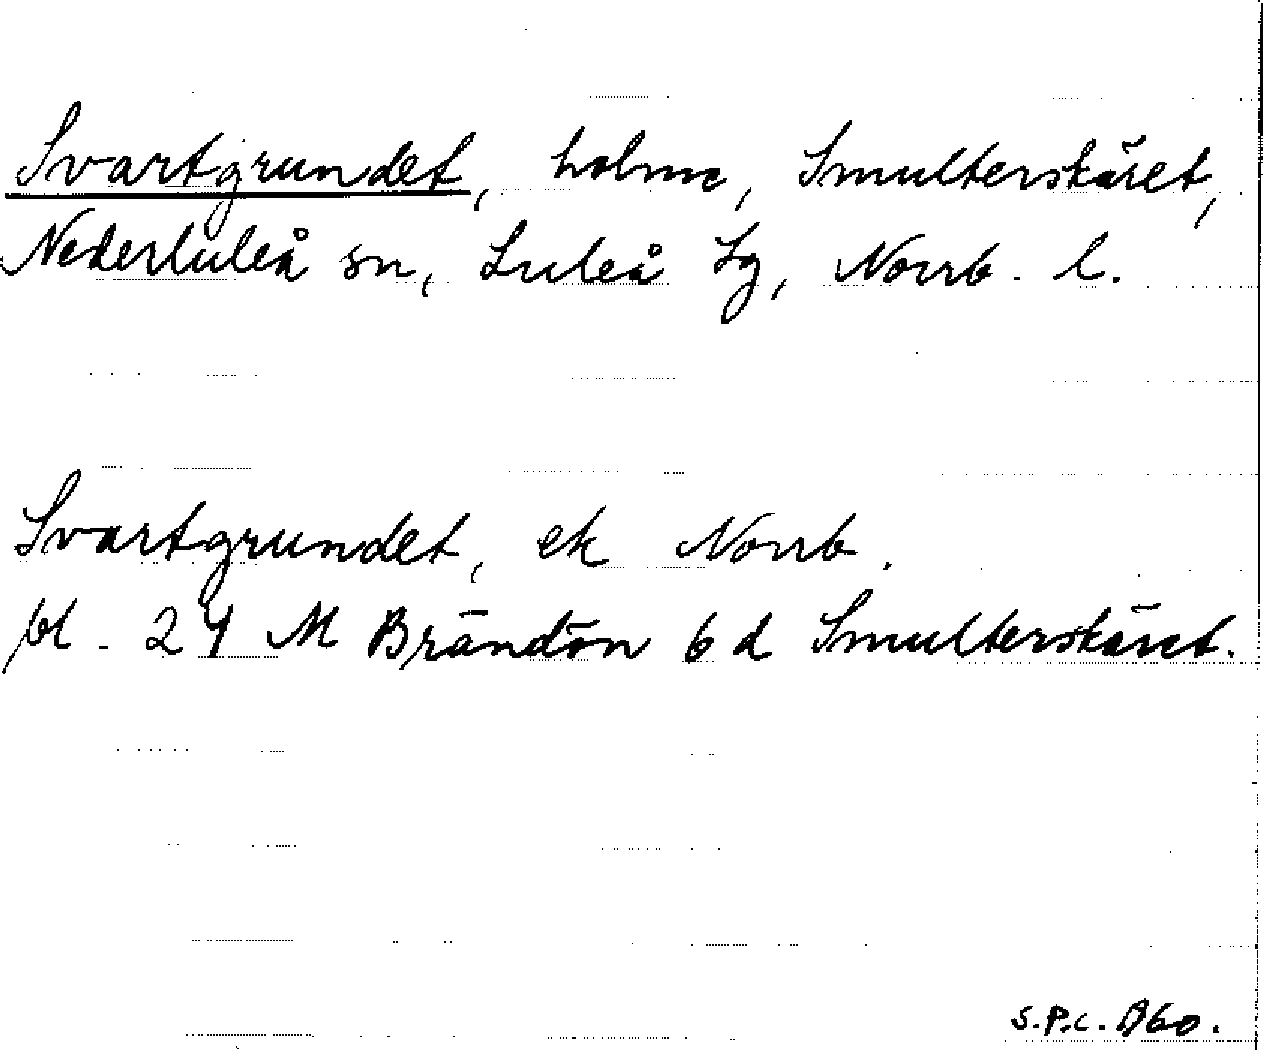 Svartgrundet, holme, Smulterskäret,
Nederluleå sn, Luleå tg, Norrb. l.
Svartgrundet, ek Norrb.
bl. 24 M Brändön 6 d Smulterskäret.
S.P.C. 1960.